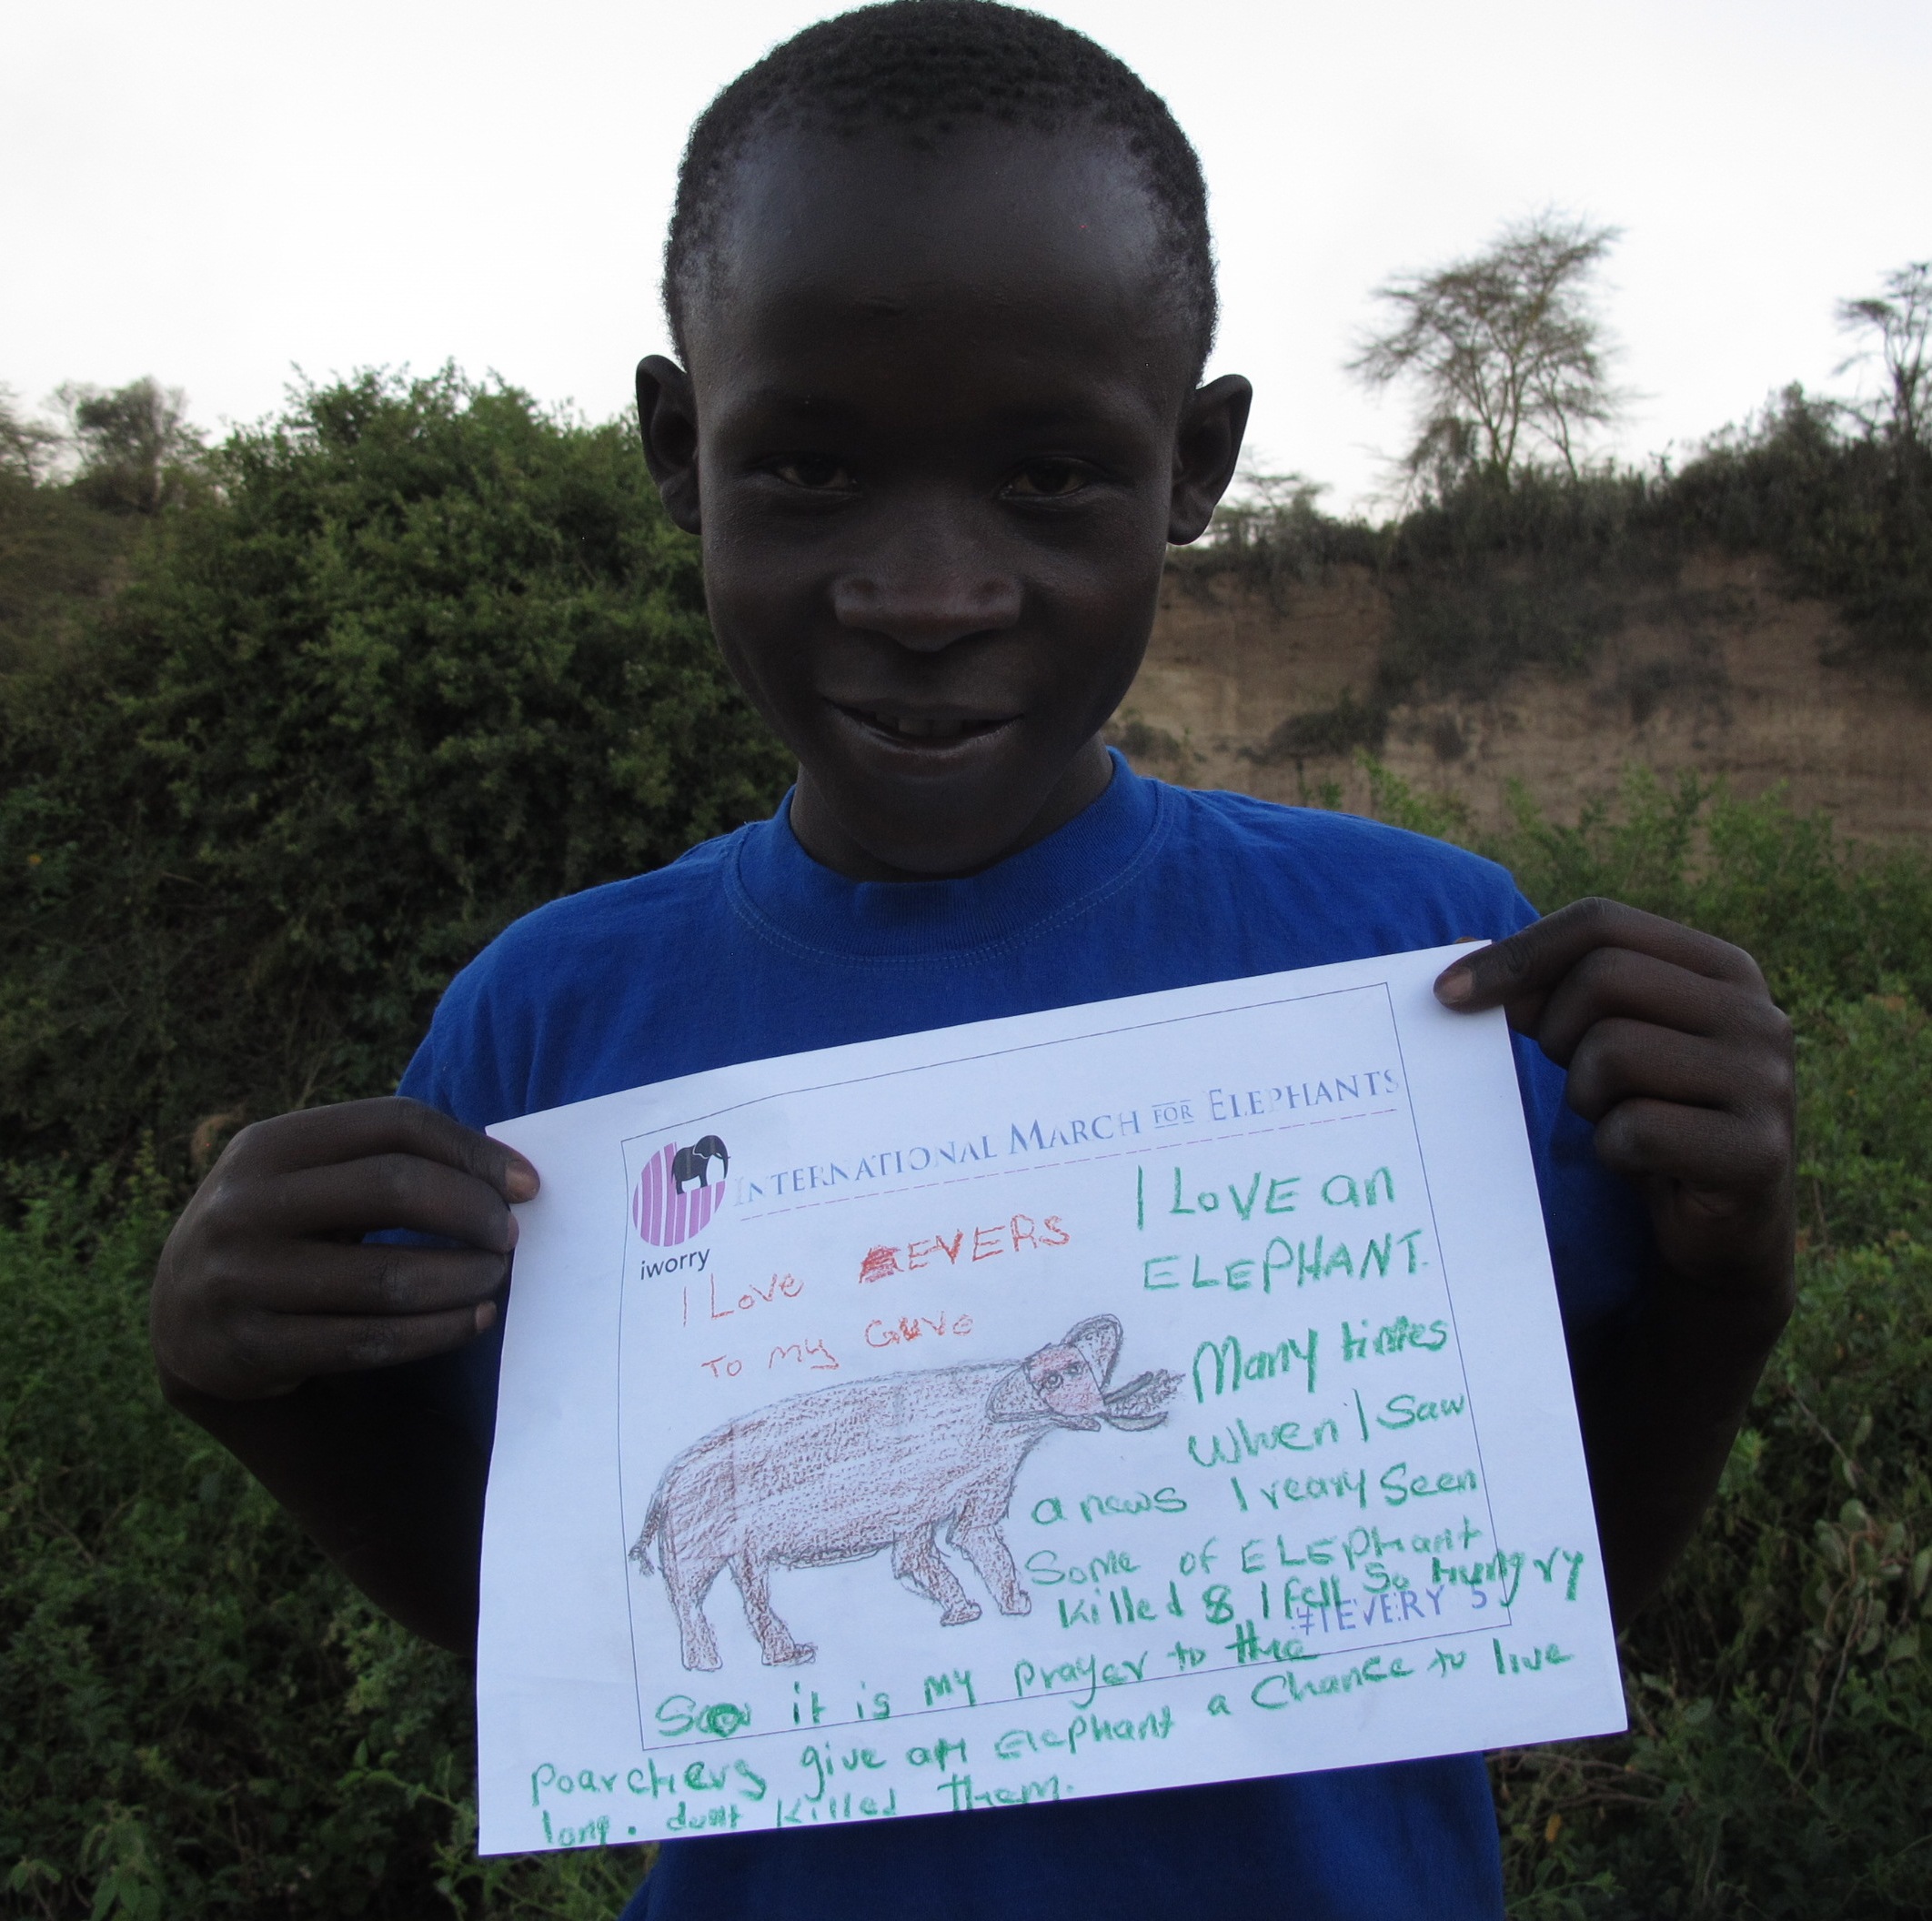 INTERNATIONAL MARCH FOR ELEPHANTS
iworry
I Love EVERS
TO my
I LOVE an
ELEPHANT.
Many times
When I Saw
a news I reary Seen
Some of ELEphant
Killed & I fell So hungry
#1EVERY 5
So it is my Prayer to the
Poarchers give an Elephant a Chance to live
long. dont killed them.